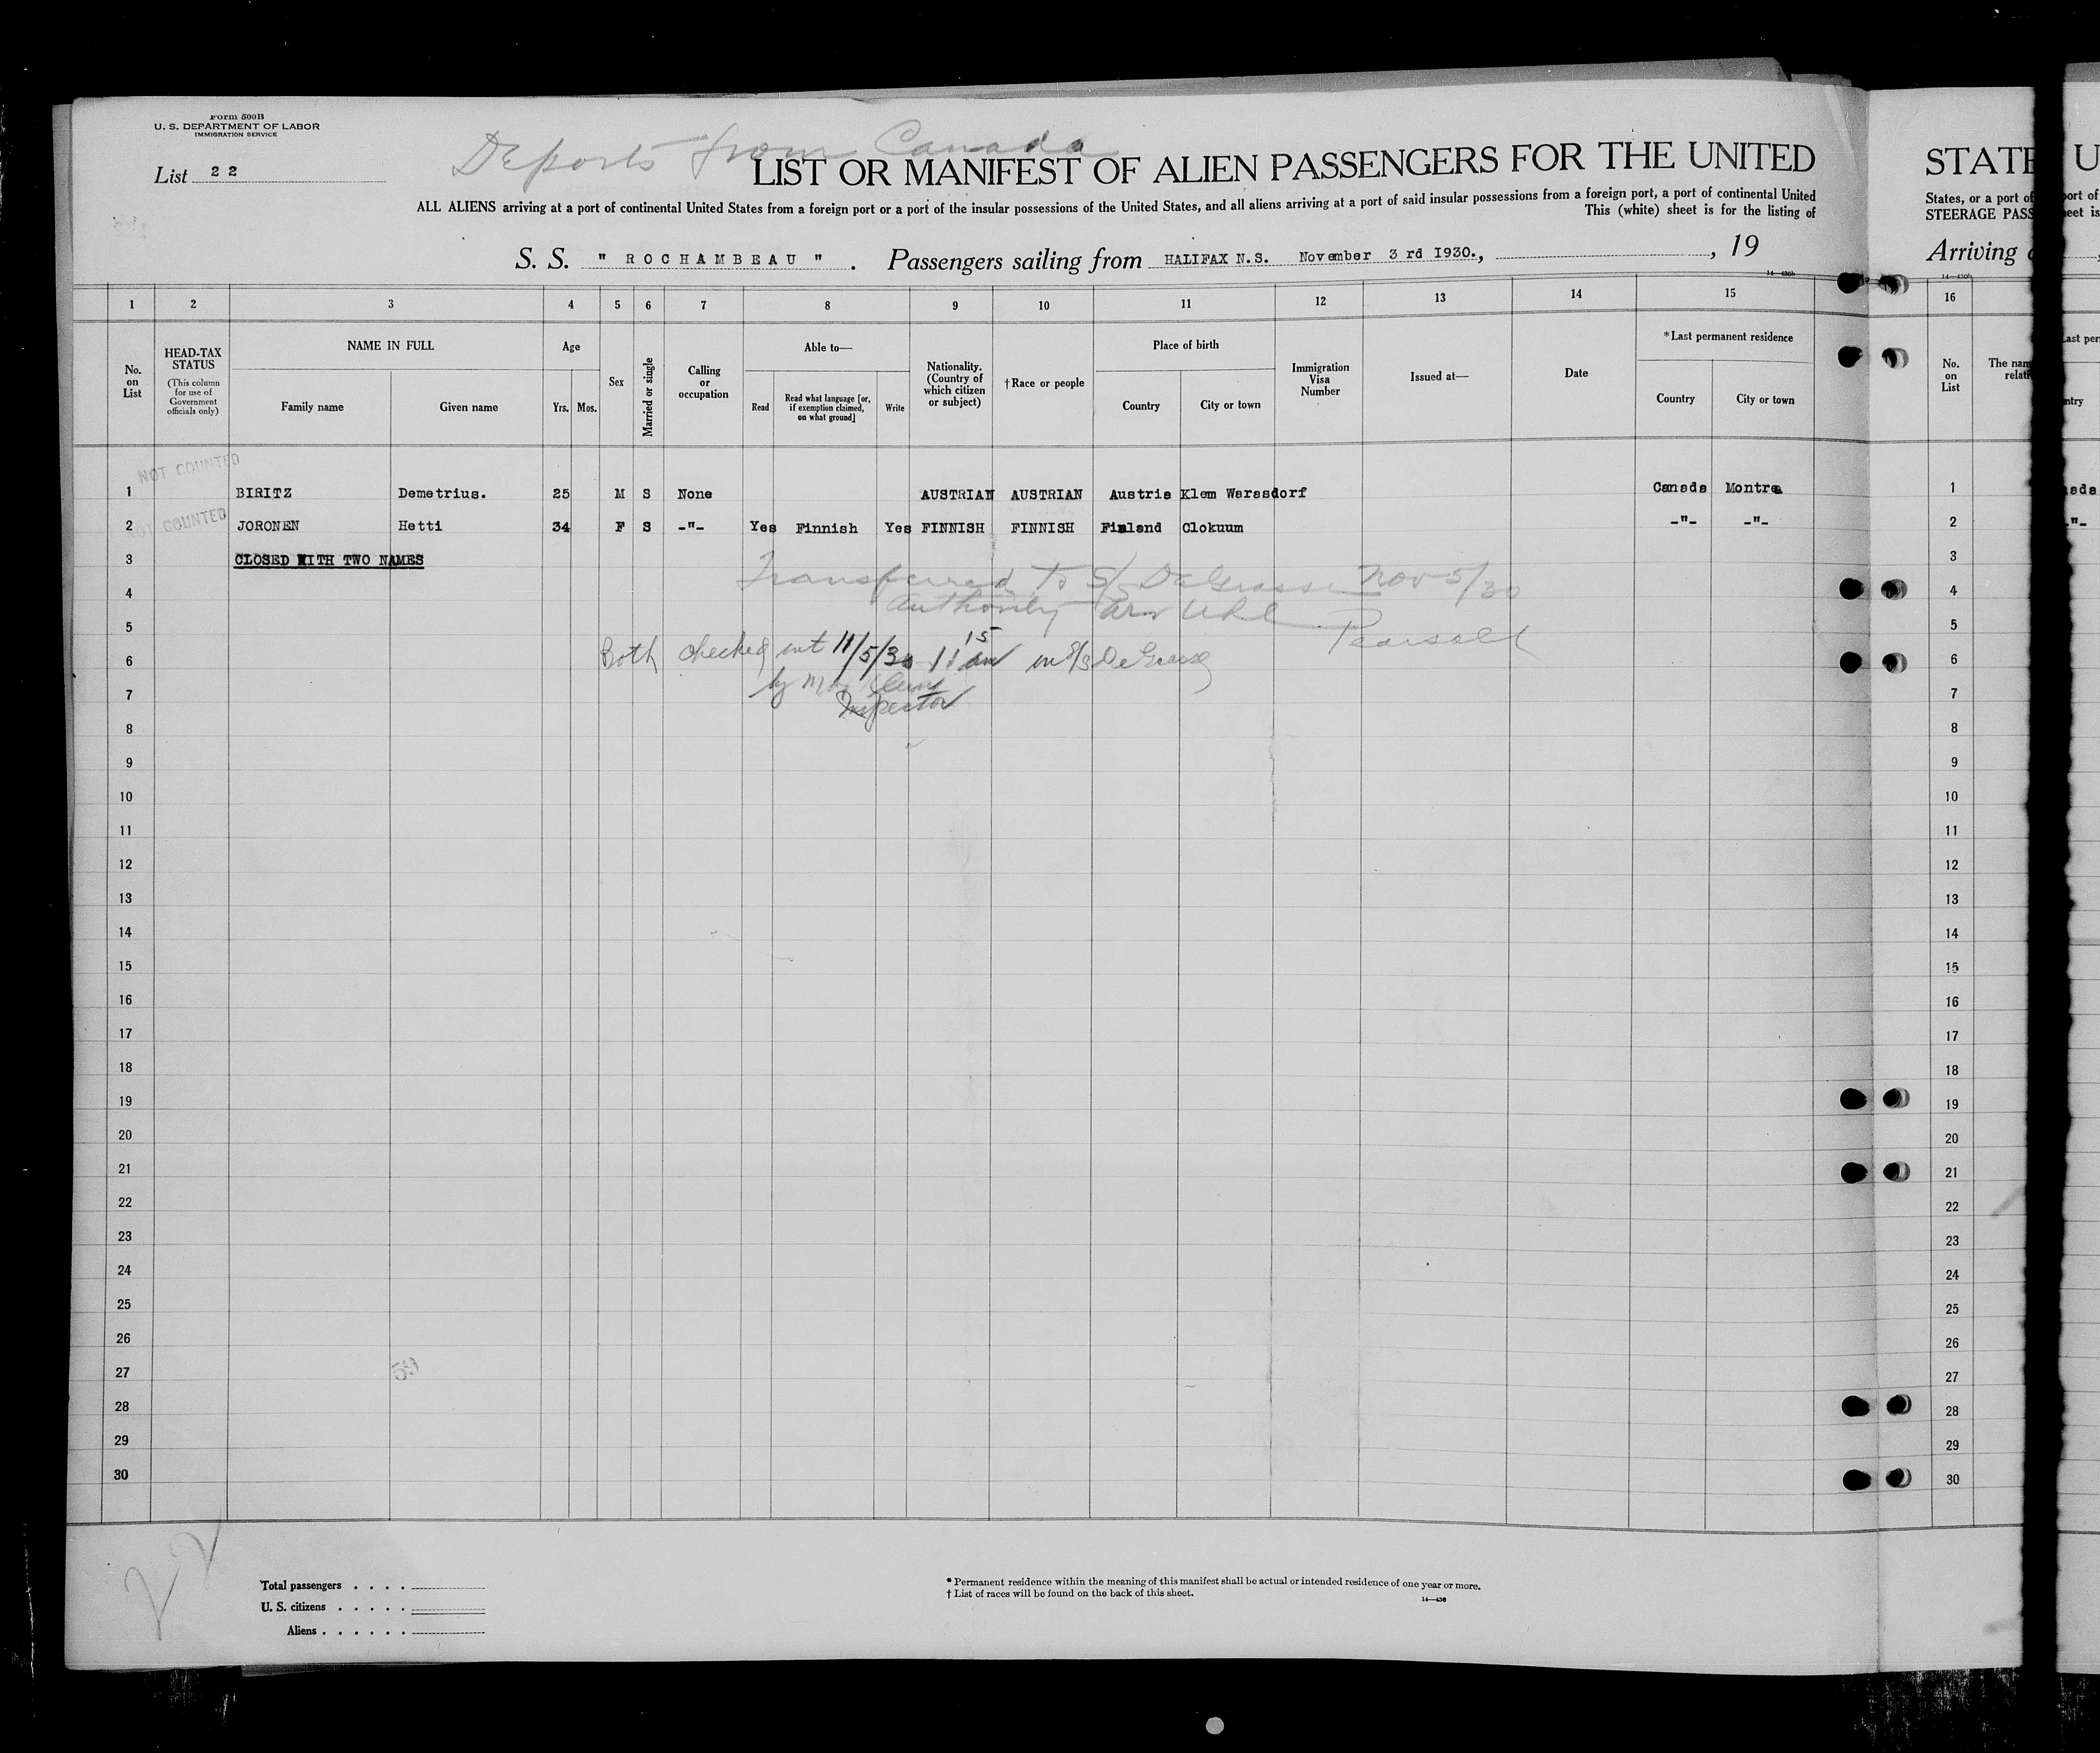 Form 500B
U. S. DEPARTMENT OF LABOR
IMMIGRATION SERVICE
List 22
Deports from Canada
LIST OR MANIFEST OF ALIEN PASSENGERS FOR THE UNITED
ALL ALIENS arriving at a port of continental United States from a foreign port or a port of the insular possessions of the United States, and all aliens arriving at a port of said insular possessions from a foreign port, a port of continental United
This (white) sheet is for the listing of
S. S. " ROCHAMBEAU " . Passengers sailing from HALIFAX N.S. November 3 rd 1930., , 19
1 2 3 4 5 6 7 8 9 10 11 12 13 14 15
No. on List
HEAD-TAX STATUS (This column for use of Government officials only)
NAME IN FULL
Family name Given name
Age
Yrs. Mos.
Sex
Married or single
Calling or occupation
Able to—
Read
Read what language [or, if exemption claimed, on what ground]
Write
Nationality. (Country of which citizen or subject)
†Race or people
Place of birth
Country City or town
Immigration Visa Number
Issued at—
Date
*Last permanent residence
Country City or town
NOT COUNTED
1 BIRITZ Demetrius. 25 M S None AUSTRIAN AUSTRIAN Austria Klem Warasdorf Canada Montrea
NOT COUNTED
2 JORONEN Hetti 34 F S -"- Yes Finnish Yes FINNISH FINNISH Finland Clokuum -"- -"-
3 CLOSED WITH TWO NAMES
Transferred to S/S DeGrasse Nov 5/30
4 Authority Uhl
5 Pearsall
6 Both checked out 11/5/30 11 15 am on S/S DeGrasse
7 by
Inspector
8
9
10
11
12
13
14
15
16
17
18
19
20
21
22
23
24
25
26
27
59
28
29
30
22
Total passengers . . . .
U. S. citizens . . . . .
Aliens . . . . . .
* Permanent residence within the meaning of this manifest shall be actual or intended residence of one year or more.
† List of races will be found on the back of this sheet.
14—430
STATE
States, or a port of
STEERAGE PASS
Arriving
16
No. on List
The nam
relati
1
2
3
4
5
6
7
8
9
10
11
12
13
14
15
16
17
18
19
20
21
22
23
24
25
26
27
28
29
30
U
port of
eet is
ast per
ntry
ada
-"-